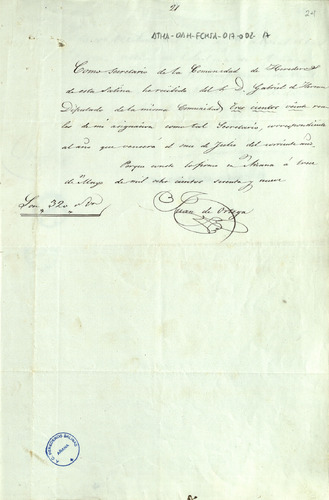 21
24
ATHA-DAH-FCHSA-017-02
Como Secretario de la Comunidad de Herederos
de esta Salina he recibido del S. D. Gabriel de
Diputado de la misma Comunidad, tres cientos veinte rea-
les de mi asignacion como tal Secretario, correspondiente
al año que vencera el mes de Julio del corriente año.
Para que conste lo firmo en Añana á trece
de Mayo de mil ocho cientos sesenta y nueve
Son 320 Rv.
Juan de Ortega